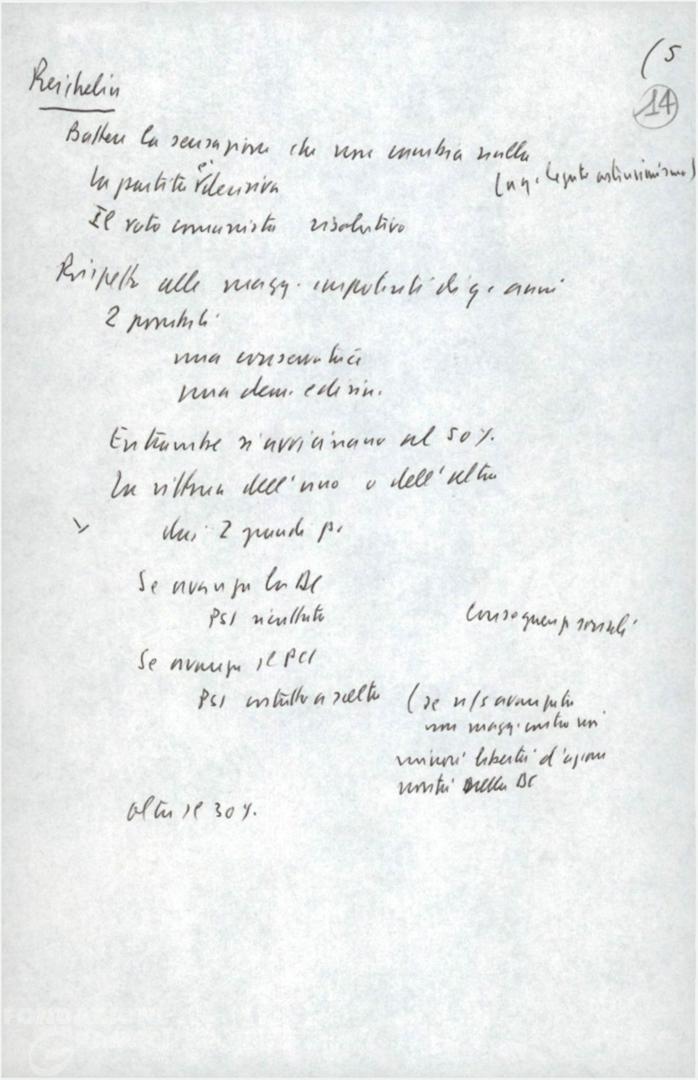 (5
14
Reichelin
Battere la sensazione che non cambia nulla
la partita è decisiva
Il voto comunista risolutivo
Rispetto alle magg. impotenti di q. anni
2 possibili
una conservatrice
una dem. e di sin.
Entrambe si avvicinano al 50%.
La vittoria dell'uno o dell'altro
dei 2 grandi p.
Se avanza la DC
PSI risucchiato
Conseguenze sociali
Se avanza il PCI
PSI costretto a scelta
(se n/s avanzata
non magg. contro noi
minori libertà d'azione
nella DC
oltre il 30%.
FONDAZIONE